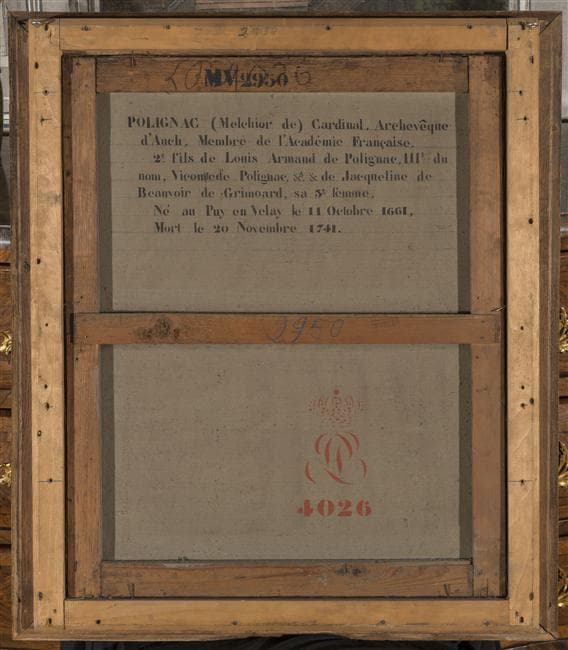 2950
MV 2950
POLIGNAC (Melchior de) Cardinal, Archevêque
d'Auch, Membre de l'Académie Française,
2e fils de Louis Armand de Polignac, IIIe du
nom, Vicomte de Polignac, &a & de Jacqueline de
Beauvoir de Grimoard, sa 3e femme,
Né au Puy en Velay le 11 Octobre 1661,
Mort le 20 Novembre 1741.
2950
4026